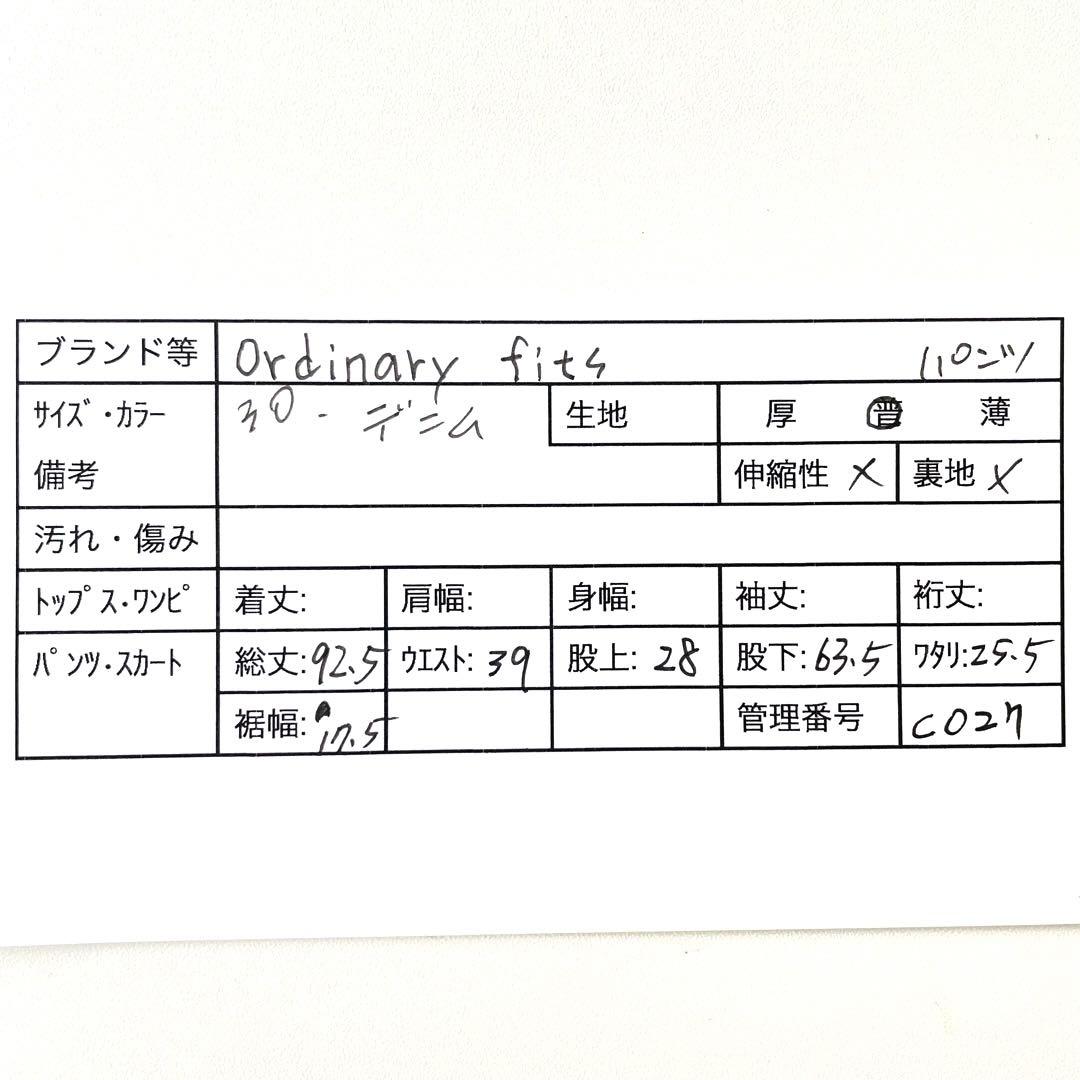 ブランド等 Ordinary fits パンツ
サイズ・カラー 30 - デニム 生地 厚 普 薄
備考 伸縮性 × 裏地 ×
汚れ・傷み
トップス・ワンピ 着丈: 肩幅: 身幅: 袖丈: 裄丈:
パンツ・スカート 総丈:92.5 ウエスト:39 股上:28 股下:63.5 ワタリ:25.5
裾幅:17.5 管理番号 C027